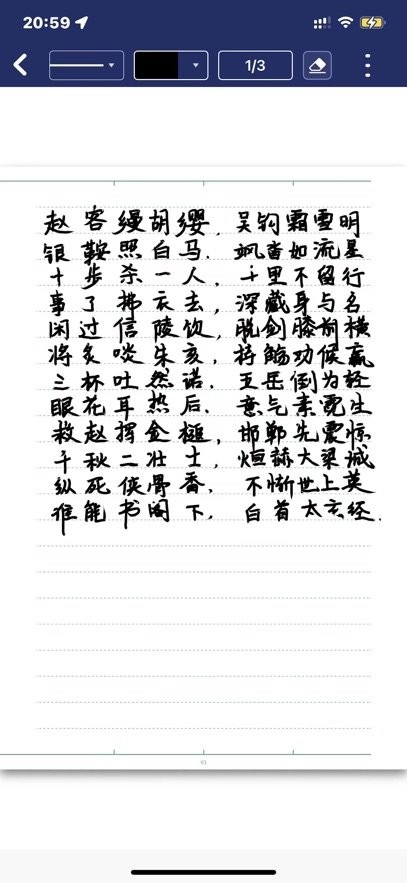 20:59
1/3
赵客缦胡缨，吴钩霜雪明
银鞍照白马，飒沓如流星
十步杀一人，千里不留行
事了拂衣去，深藏身与名
闲过信陵饮，脱剑膝前横
将炙啖朱亥，持觞劝侯嬴
三杯吐然诺，五岳倒为轻
眼花耳热后，意气素霓生
救赵挥金槌，邯郸先震惊
千秋二壮士，烜赫大梁城
纵死侠骨香，不惭世上英
谁能书阁下，白首太玄经.